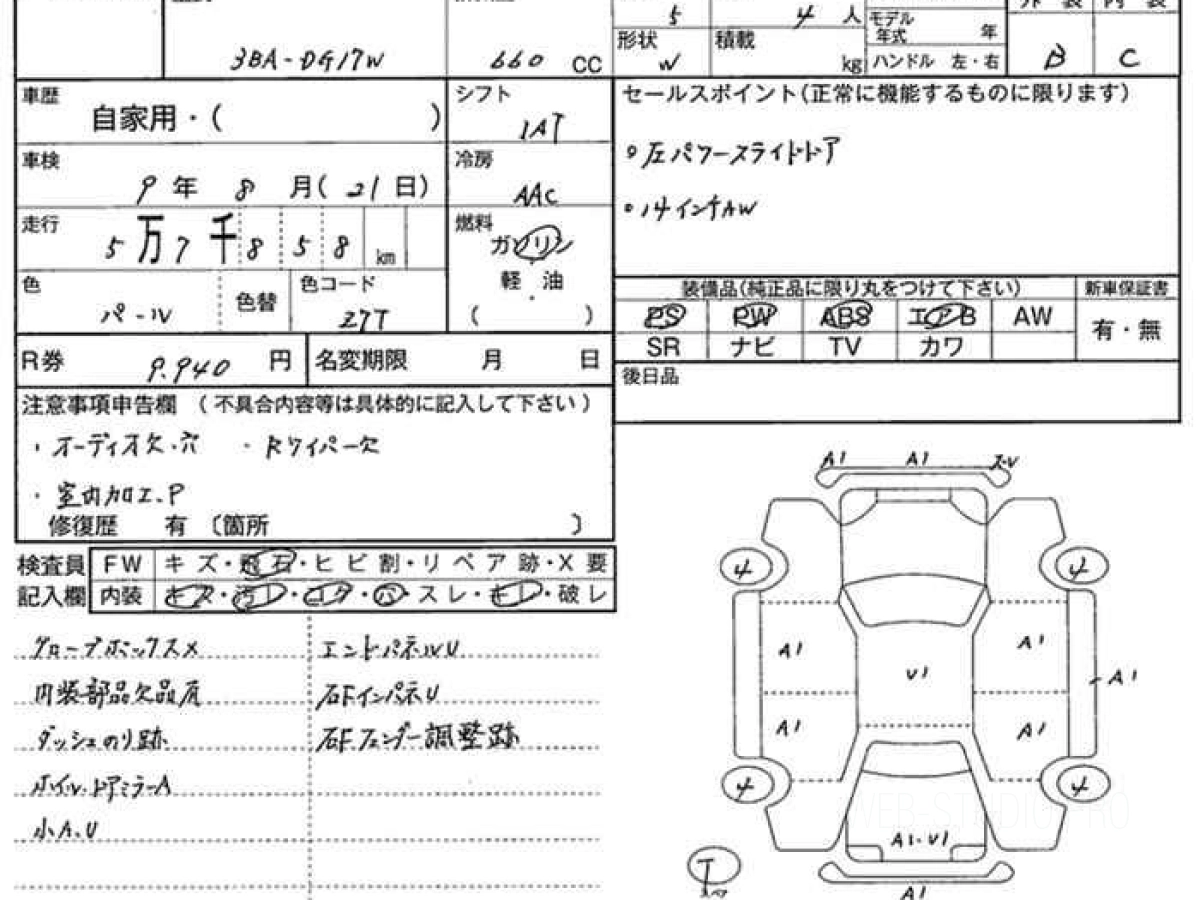 5
4 人
モデル年式 年
形状 W
積載 kg
ハンドル 左・右
B
C
3BA-DG17W
660 CC
車歴
自家用・( )
シフト
IAT
セールスポイント(正常に機能するものに限ります)
車検
9年 8月(21日)
冷房
AAC
。左パワースライドドア
。14インチAW
走行
5万7千858km
燃料
ガソリン
軽 油
( )
色
パール
色替
色コード
Z7T
装備品(純正品に限り丸をつけて下さい)
新車保証書
PS PW ABS エアB AW
有・無
SR ナビ TV カワ
R券 9.940円
名変期限 月 日
後日品
注意事項申告欄 (不具合内容等は具体的に記入して下さい)
・オーディオ欠.穴 ・Rワイパー欠
・室内加工.P
修復歴 有〔箇所 〕
検査員記入欄
FW キズ・飛石・ヒビ割・リペア跡・X要
内装 キズ・汚レ・コゲ・穴・スレ・キレ・破レ
グローブボックスメ
エンドパネルU
内装部品欠品有
右FインパネU
ダッシュのり跡
右Fフェンダー調整跡
ホイル.ドアミラーA
小A.U
A1 A1 ス-V
4 4
A1 A1
U1
A1
A1 A1
4 4
A1.U1
T
スペア
A1
WEB-STUDIO.PRO